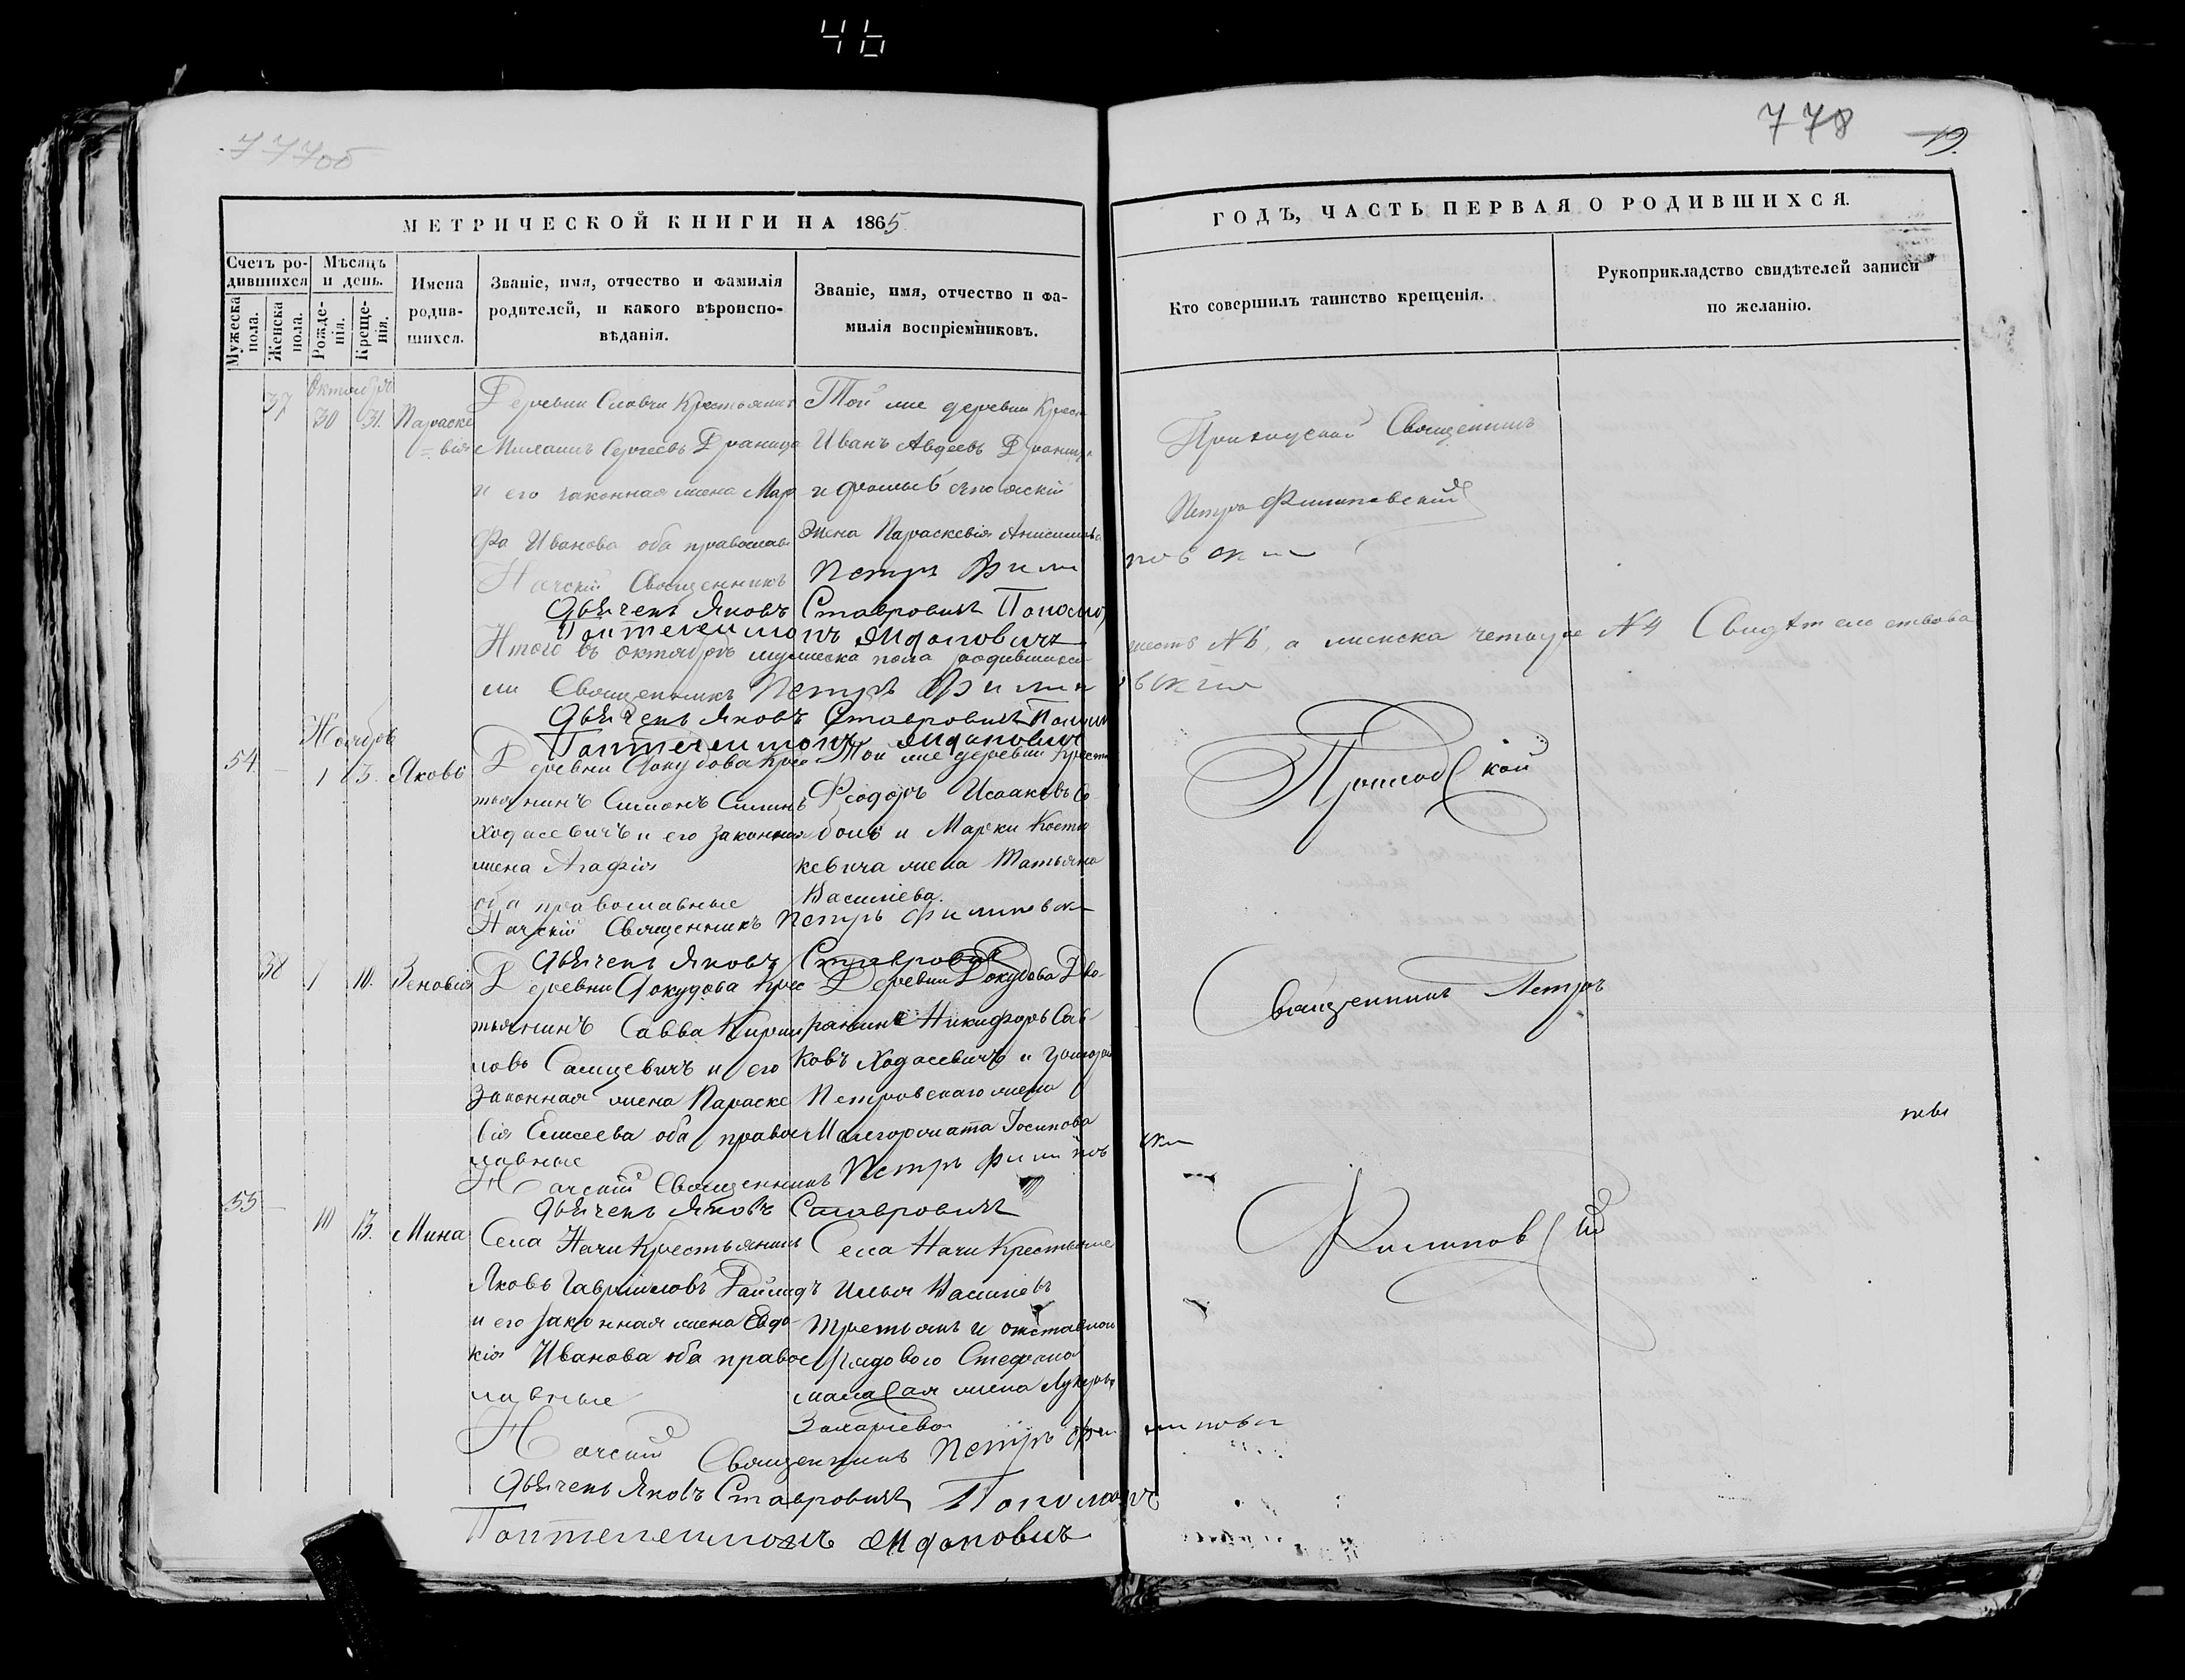 46
777об
778
19.
МЕТРИЧЕСКОЙ КНИГИ НА 1865
ГОДЪ, ЧАСТЬ ПЕРВАЯ О РОДИВШИХСЯ.
Счетъ ро-
дившихся
Мужеска
пола.
Женска
пола.
Мѣсяцъ
и день.
Рожде-
нія.
Креще-
нія.
Имена
родив-
шихся.
Званіе, имя, отчество и фамилія
родителей, и какого вѣроиспо-
вѣданія.
Званіе, имя, отчество и фа-
милія воспріемниковъ.
Кто совершилъ таинство крещенія.
Рукоприкладство свидѣтелей записи
по желанію.
Октябрь
37 30 31. Параске
=вія
Деревни Крестьянинъ
Сергеевъ Драница
и его законная жена Мар
фа Иванова оба православ
Той же деревни Крест
Иванъ Авдеевъ Драница
и
жена Параскевія
Приходский Священникъ
Петръ Филиповский
Начскій Священникъ Петръ Фили повски
Дьячекъ Яковъ Ставровичъ Пономар
Пантелеимонъ
Итого въ октябрѣ мужеска пола родившихся шесть №6, а женска четыре №4 Свидѣтельствова
ли Священникъ Петръ Филип вскій
Дьячекъ Яковъ Ставровичъ Поном
Пантелеимонъ
Ноябрь
54. - 1 3. Яковъ
Деревни Докудова Крес
тьянинъ Симонъ
Ходасевичъ и его законная
жена Агафія
оба православные
Той же деревни Крестья
Феодоръ Исааковъ Со
боль и Марки Костю
кевича жена Татьяна
Василіева.
Приходской
Начскій Священникъ Петръ Филиповск
Дьячекъ Яковъ Ставровичъ
38 1 10. Зеновія
Деревни Докудова Крес
тьянинъ Савва Кирил
ловъ и его
законная жена Параске
вія Елисеева оба правос
лавные
Деревни Докудова Дво
рянинъ Никифоръ Сав
ковъ Ходасевичъ и Григорія
Петровскаго жена
Малгоржата Іосипова
Священникъ Петръ
Начскій Священникъ Петръ Филипов ски
Дьячекъ Яковъ Ставровичъ
55 - 10 13. Мина
Села Начи Крестьянинъ
Яковъ Гавріиловъ
и его законная жена Евдо-
кія Иванова оба правос
лавные
Села Начи Крестьяне
Илья Василіевъ
Третьякъ и отставного
рядового Стефана
жена
Захаріева
Филиповскій
Начскій Священникъ Петръ Фи липовск
Дьячекъ Яковъ Ставровичъ Пономарь
Пантелеимонъ